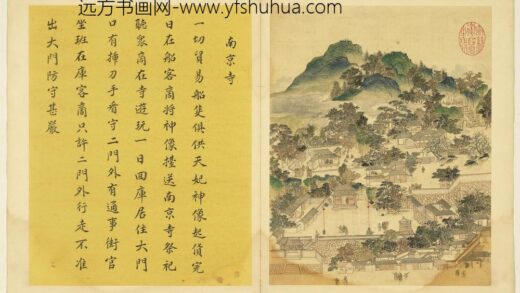 远方书画网-www.yfshuhua.com
南京寺
一切貿易船隻俱供天妃神像起貨完
日在船客商將神像擡送南京寺祭祀
聽眾商在寺遊玩一日回庫居住大門
口有插刀手看守二門外有通事街官
坐班在庫客商只許二門外行走不准
出大門防守甚嚴